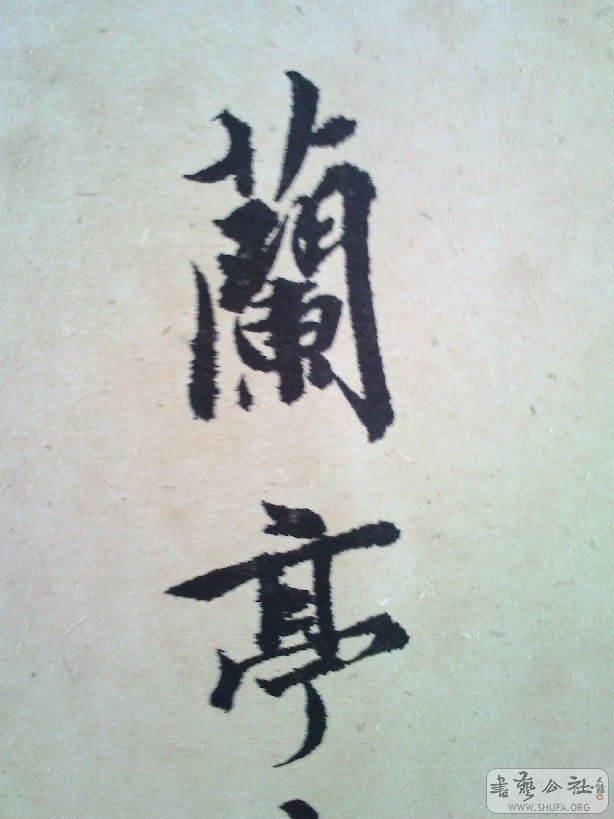 蘭亭
書藝公社
WWW.SHUFA.ORG